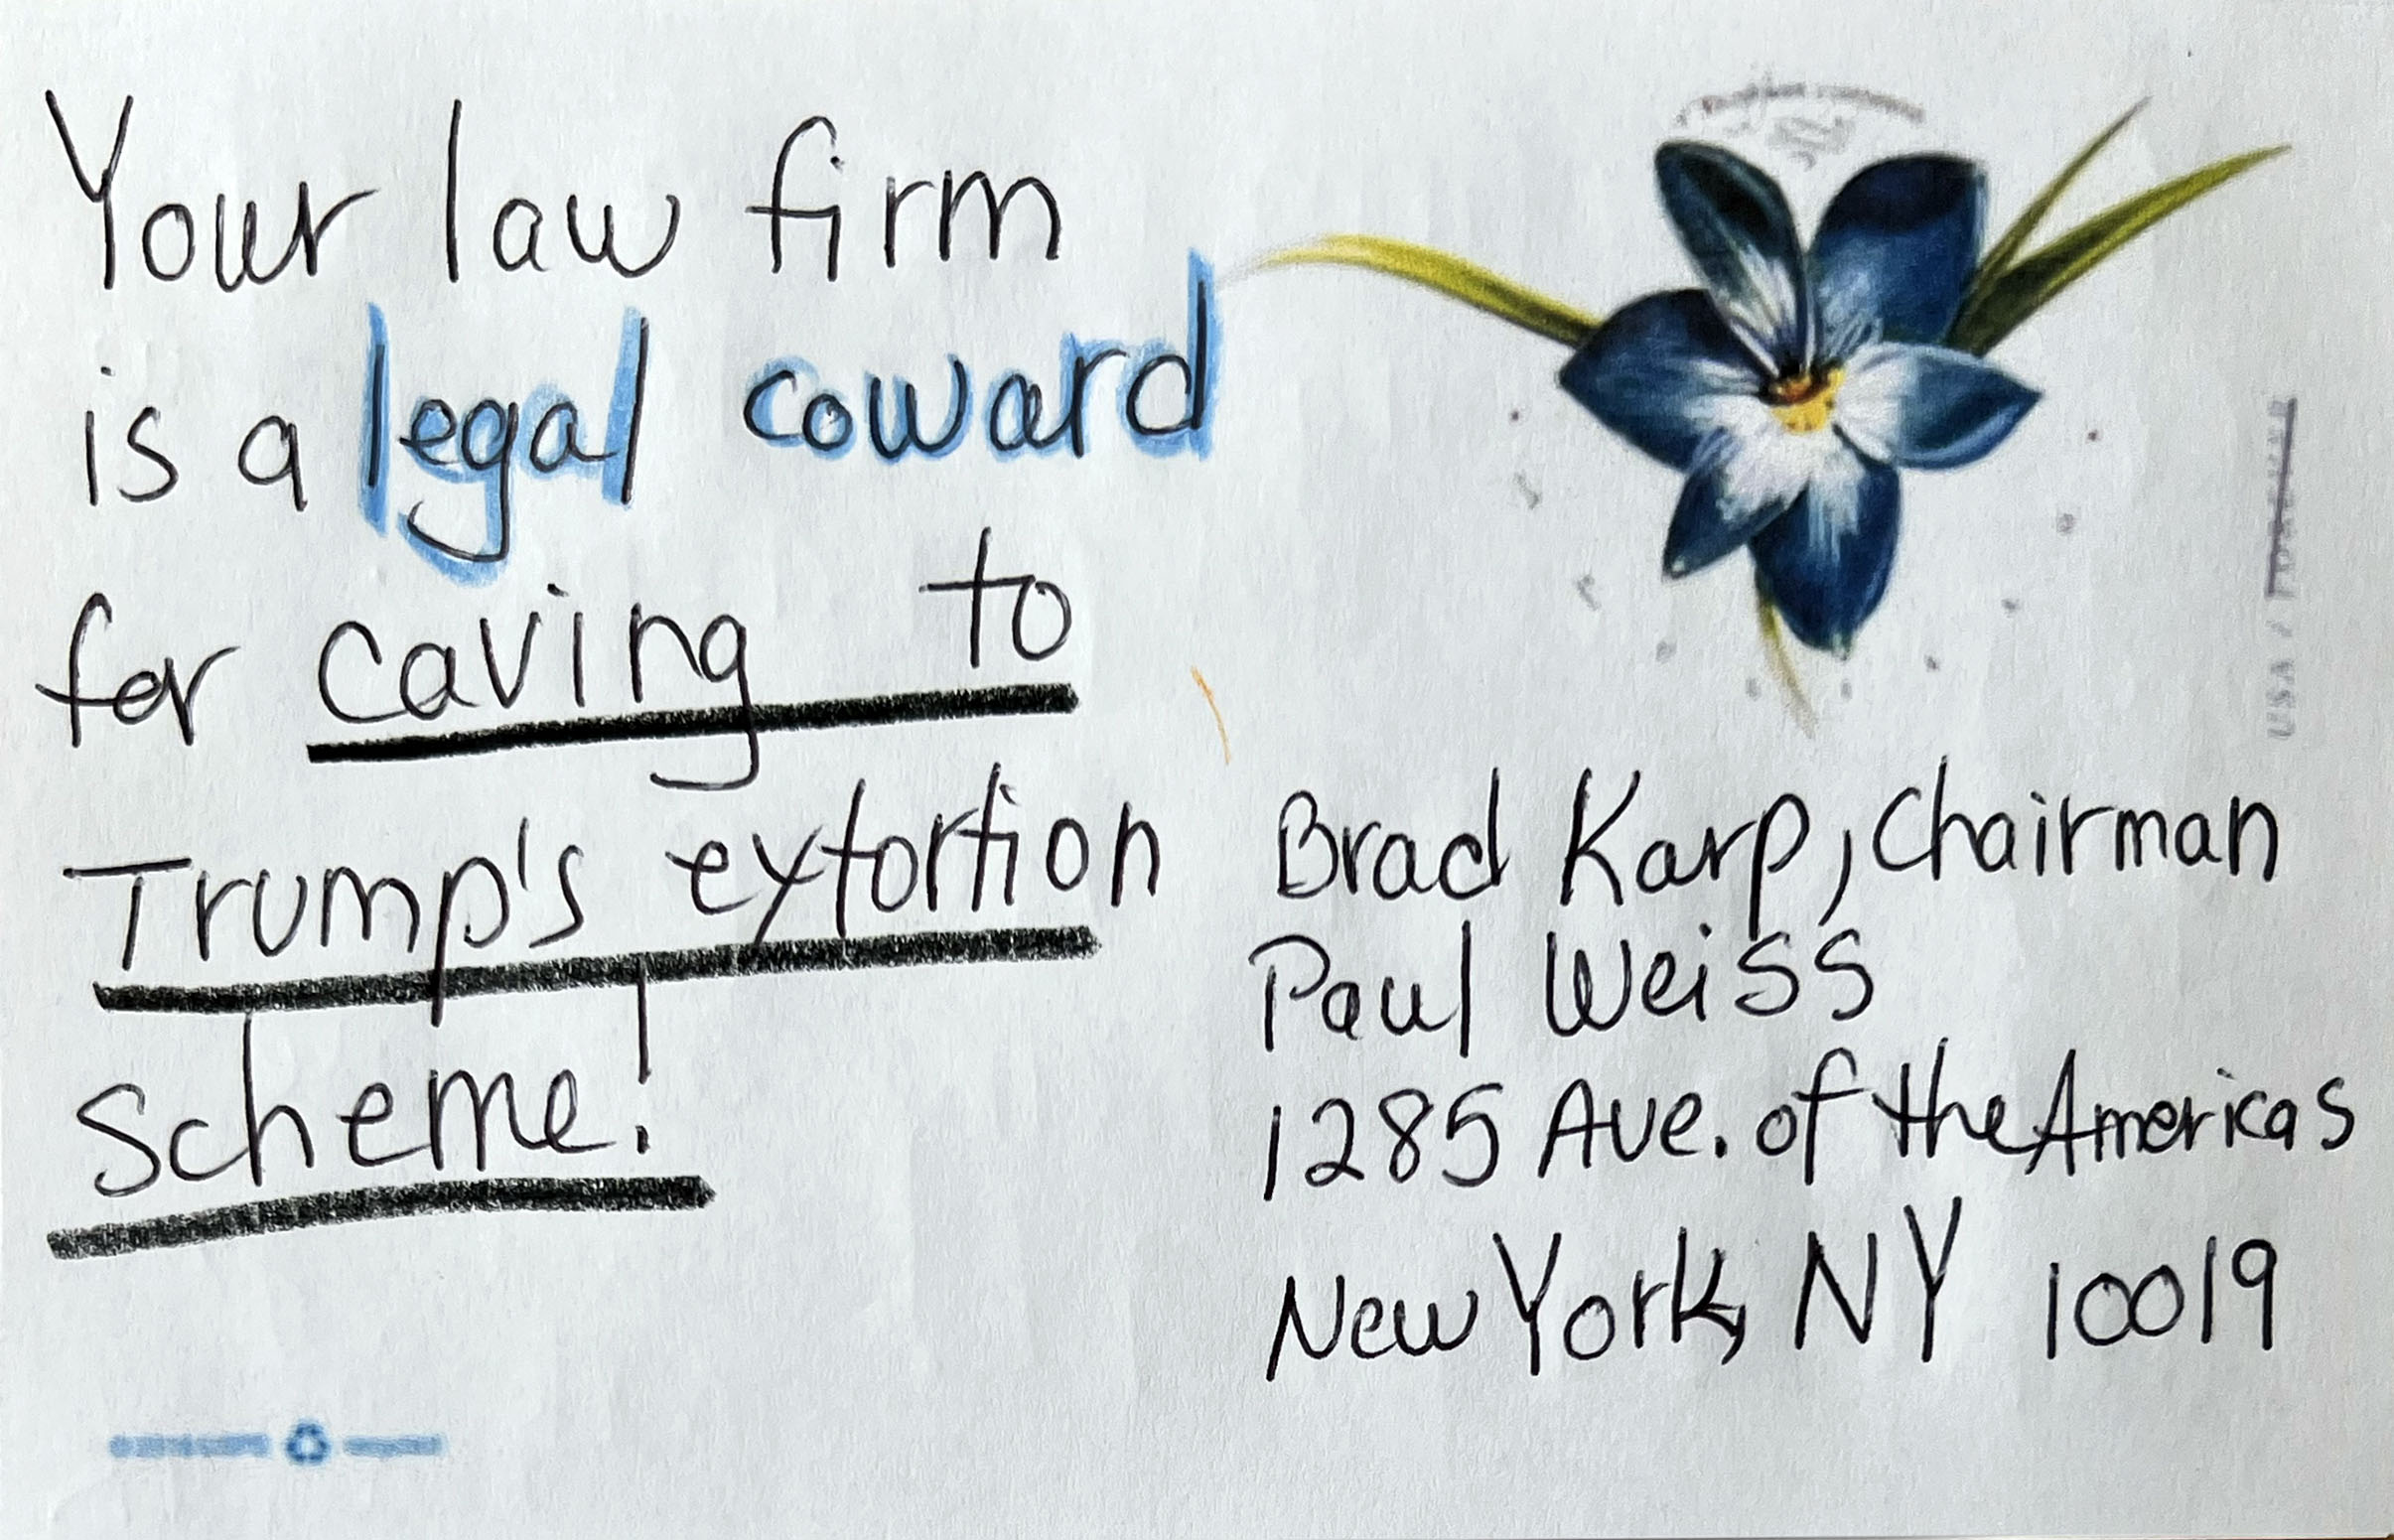 Your law firm
is a legal coward
for caving to
Trump's extortion
scheme!
USA / FOREVER
Brad Karp, Chairman
Paul Weiss
1285 Ave. of the Americas
New York, NY 10019